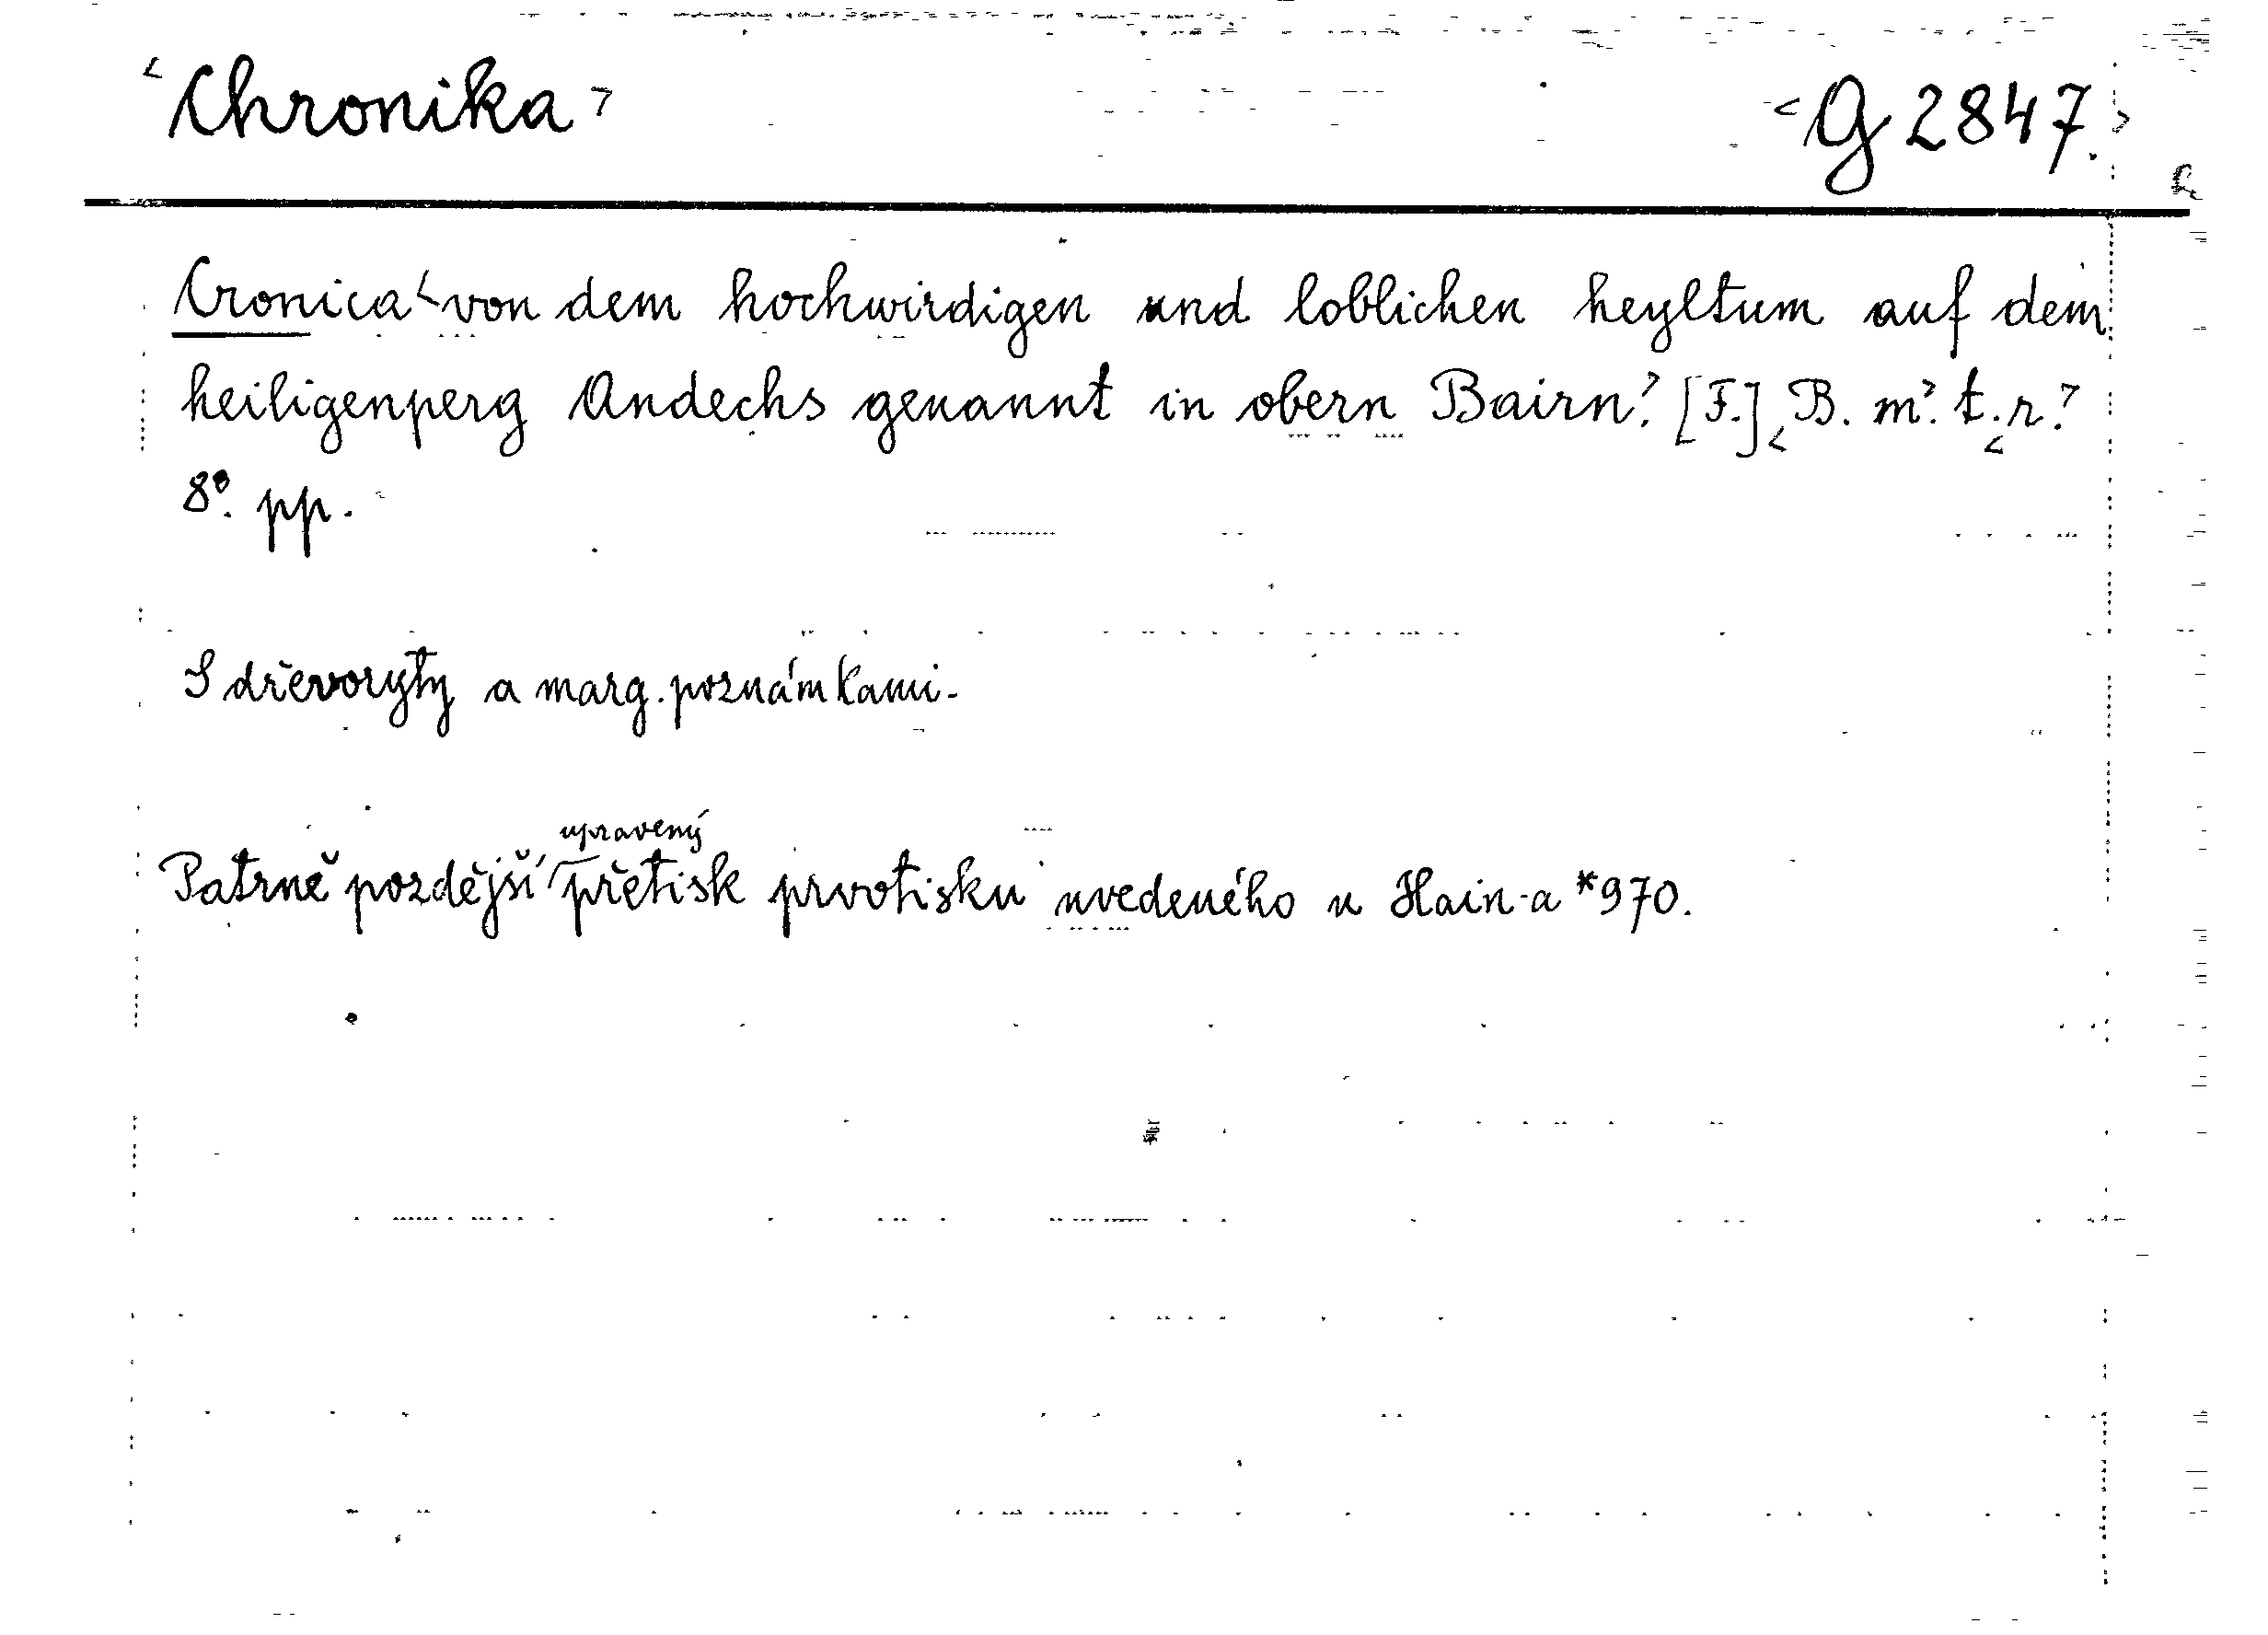 <Chronika> <G 2847.>
Cronica <von dem hochwirdigen und loblichen heyltum auf dem
heiligenperg Andechs genannt in obern Bairn.> [F.] <B. m.> t. <r.>
8°. pp.
S dřevoryty a marg. poznámkami.
upravený
Patrně pozdější přetisk prvotisku uvedeného u Hain-a *970.